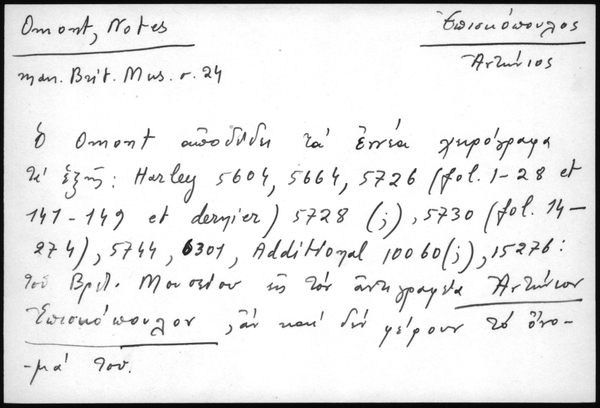 Omont, Notes Ἐπισκόπουλος
man. Brit. Mus. σ. 24 Ἀντώνιος
Ὁ Omont ἀποδίδει τά ἐννέα χειρόγραφα
τά ἑξῆς: Harley 5604, 5664, 5726 (fol. 1-28 et
141-149 et dernier) 5728 (;), 5730 (fol. 14-
274), 5744, 6301, Additional 10060(;), 15276:
τοῦ Βρετ. Μουσείου εἰς τόν ἀντιγραφέα Ἀντώνιον
Ἐπισκόπουλον, ἄν καί δέν φέρουν τό ὄνο-
-μά του.